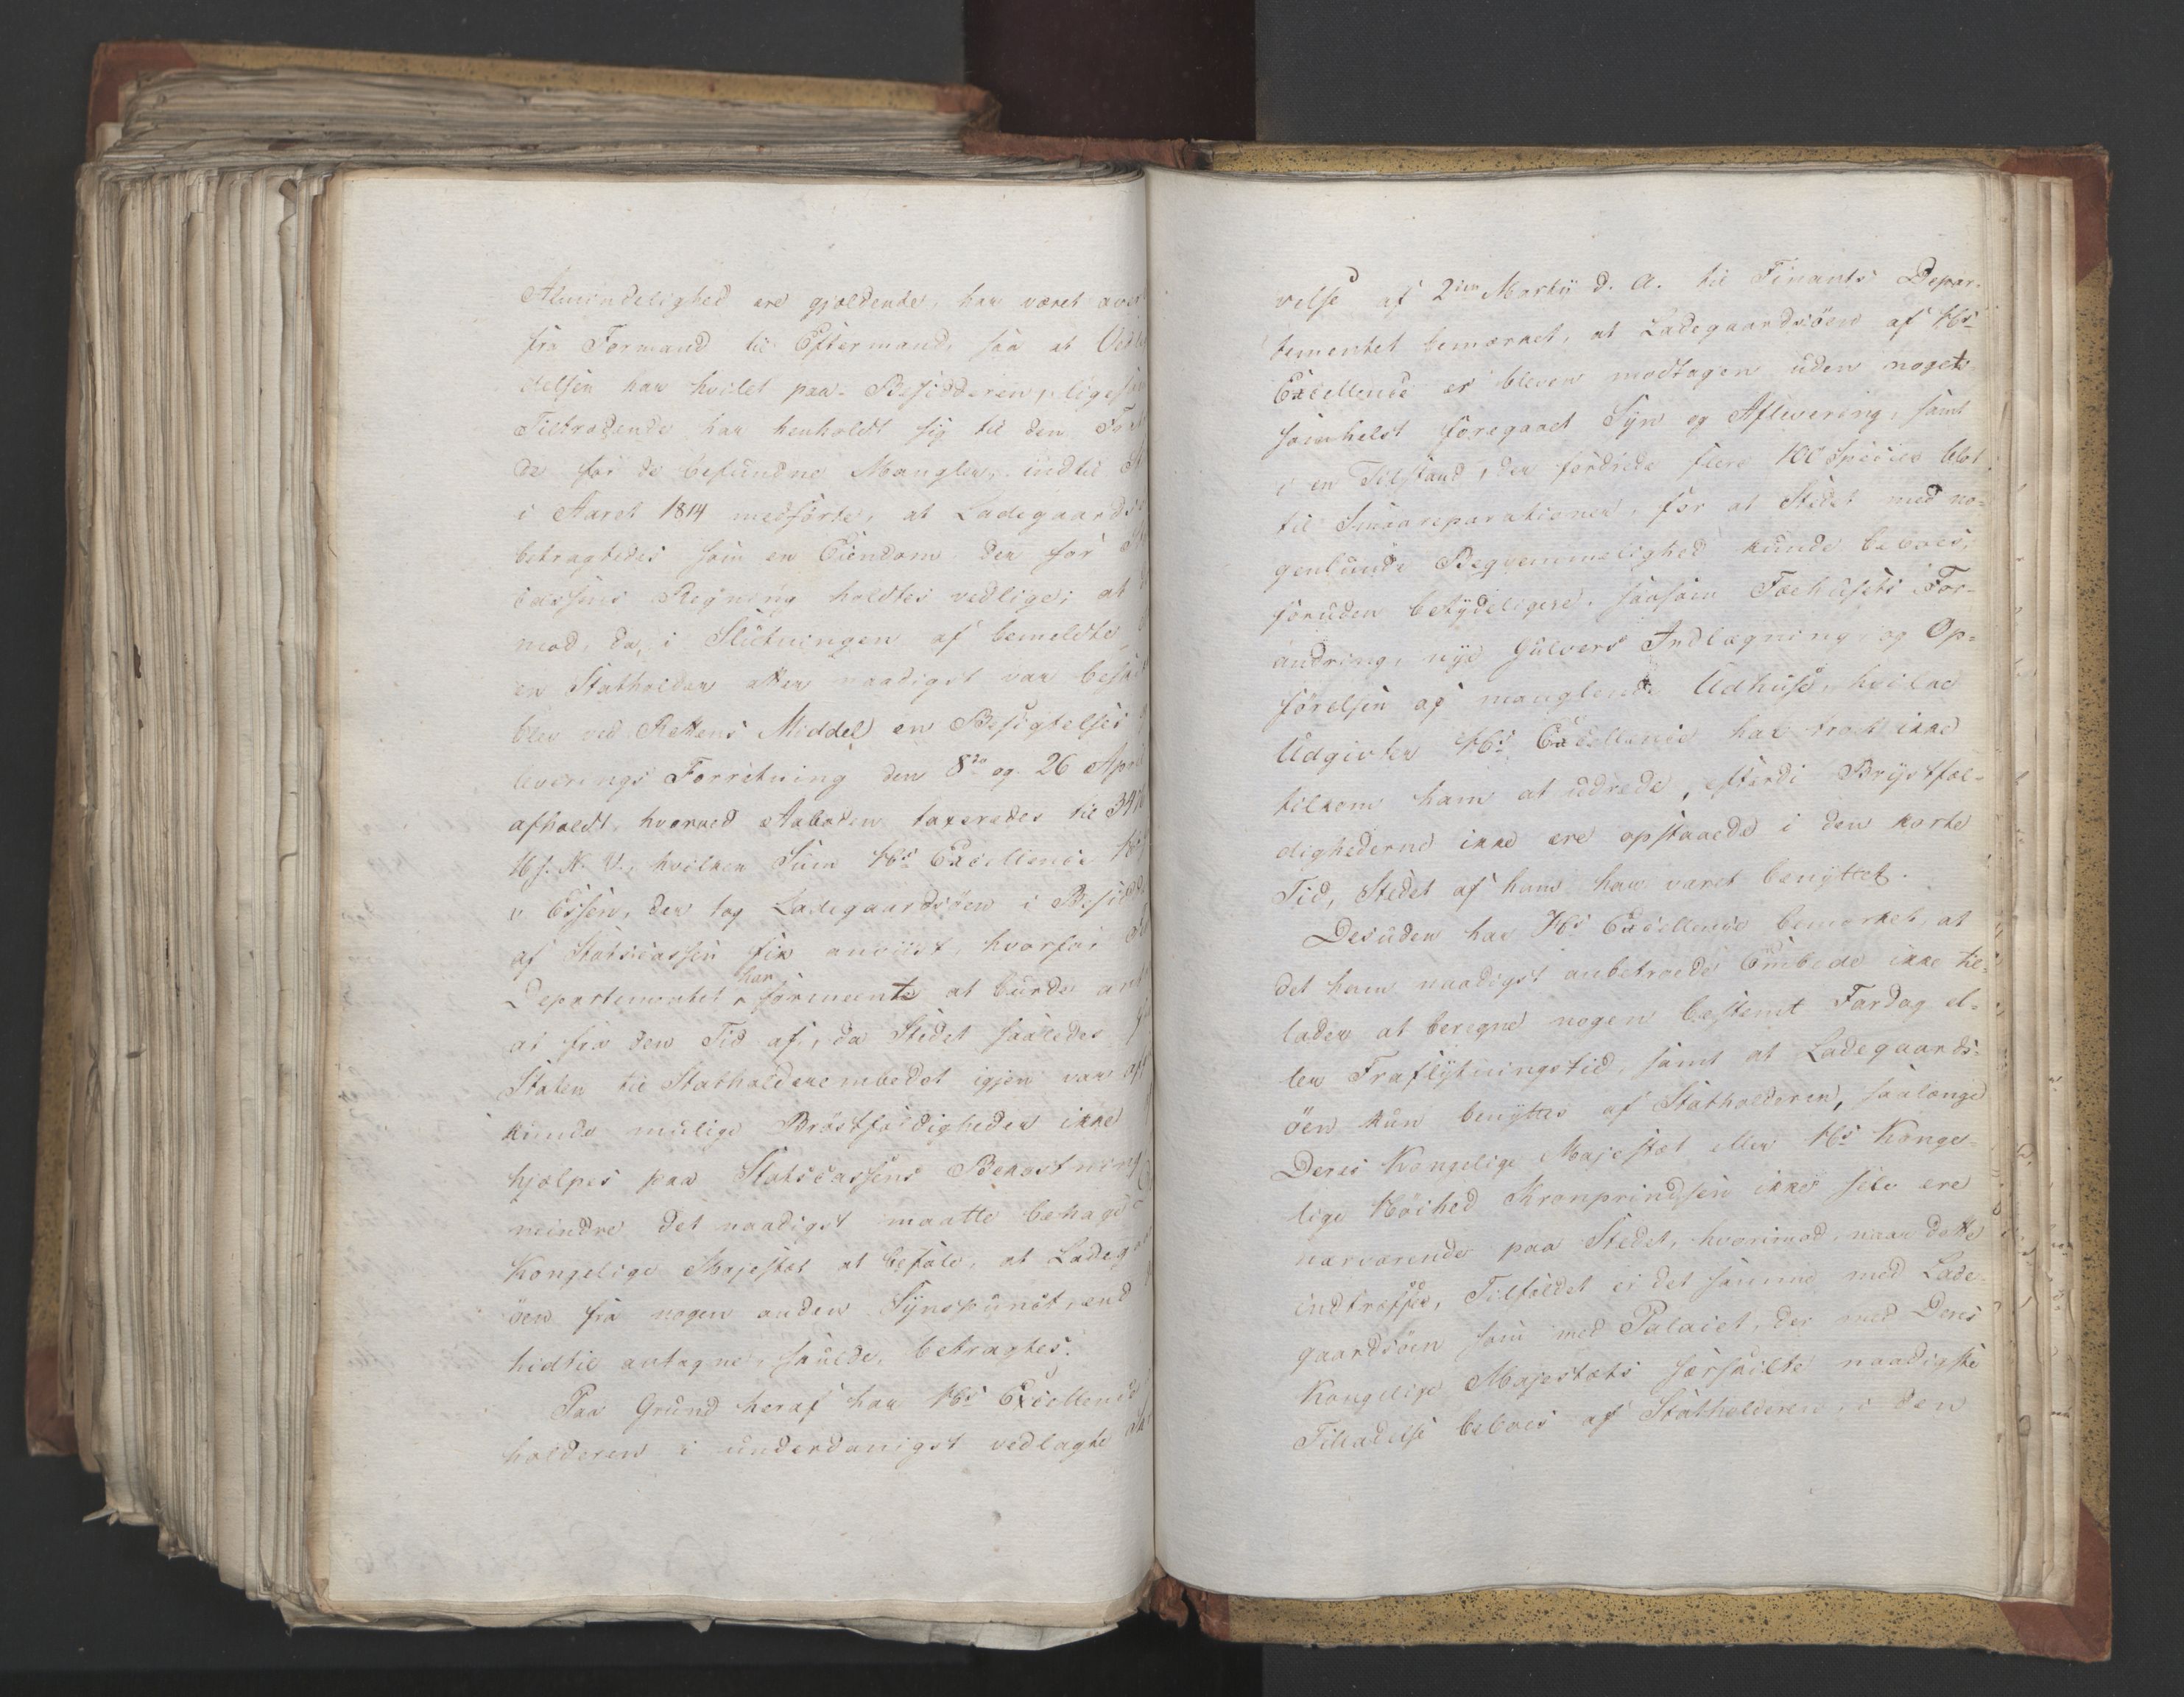 Almindelighed ere gjældende, har været
fra Formand til Eftermand, saa at
delsen har hvilet paa Besidderen, lige
Tiltrædende har henholdt sig til den
de for de befundne Mangler, indtil
i Aaret 1814 medførte, at Ladegaards
betragtedes som en Eiendom der for
cassens Regning holdtes vedlige; at
mod, da, i Slutningen af bemeldte
en Statholder atter naadigst var
blev ved Rettens Middel en Besigtelses
leverings Forretning den 8de og 26 Apri
afholdt, hvorved Aaboden taxeredes til
N. V., hvilken Sum Hs Excellence
v. Essen, der tog Ladegaardsöen i
af Statscassen fik anviist, hvorfor
Departementet har formeent at burde
at fra den Tid af, da Stedet saaledes
Staten til Statholderembedet igjen var
kunde mulige Bröstfældigheder ikke
hjælpes paa Statscassens Bekostning
mindre det naadigst maatte behage
Kongelige Majestæt at befale, at
öen fra nogen anden Synspunct, end
hidtil antagne, skulde betragtes.
Paa Grund heraf har Hs Excellence
holderen i underdanigst vedlagte
velse af 2den Martii d. A. til Finants Depar-
tementet bemærket, at Ladegaardsöen af Hs
Excellence er bleven modtagen uden noget-
somhelst foregaaet Syn og Aflevering, samt
i en Tilstand, der fordrede flere 100 Species blot
til Smaareparationer, for at Stedet med no-
genlunde Beqvemmelighed kunde beboes,
foruden betydeligere, saasom Fæehusets For-
andring, nye Gulvers Indlægning, og Op-
förelsen af manglende Udhuse, hvilke
Udgivter Hs Excellence har troet ikke
tilkom ham at udrede, efterdi Bröstfæl-
dighederne ikke ere opstaaede i den korte
Tid, Stedet af ham har været benyttet.
Desuden har Hs Excellence bemærket, at
det ham naadigst anbetroede Embede ikke til-
lader at beregne nogen bestemt Fardag el-
ler Fraflytningstid, samt at Ladegaards-
öen kun benyttes af Statholderen, saalænge
Deres Kongelige Majestæt eller Hs Konge-
lige Höihed Kronprindsen ikke selv ere
nærværende paa Stedet, hvorimod, naar dette
indtræffer, Tilfældet er det samme med Lade-
gaardsöen som med Palaiet, der med Deres
Kongelige Majestæts særskilte naadigste
Tilladelse beboes af Statholderen, i den